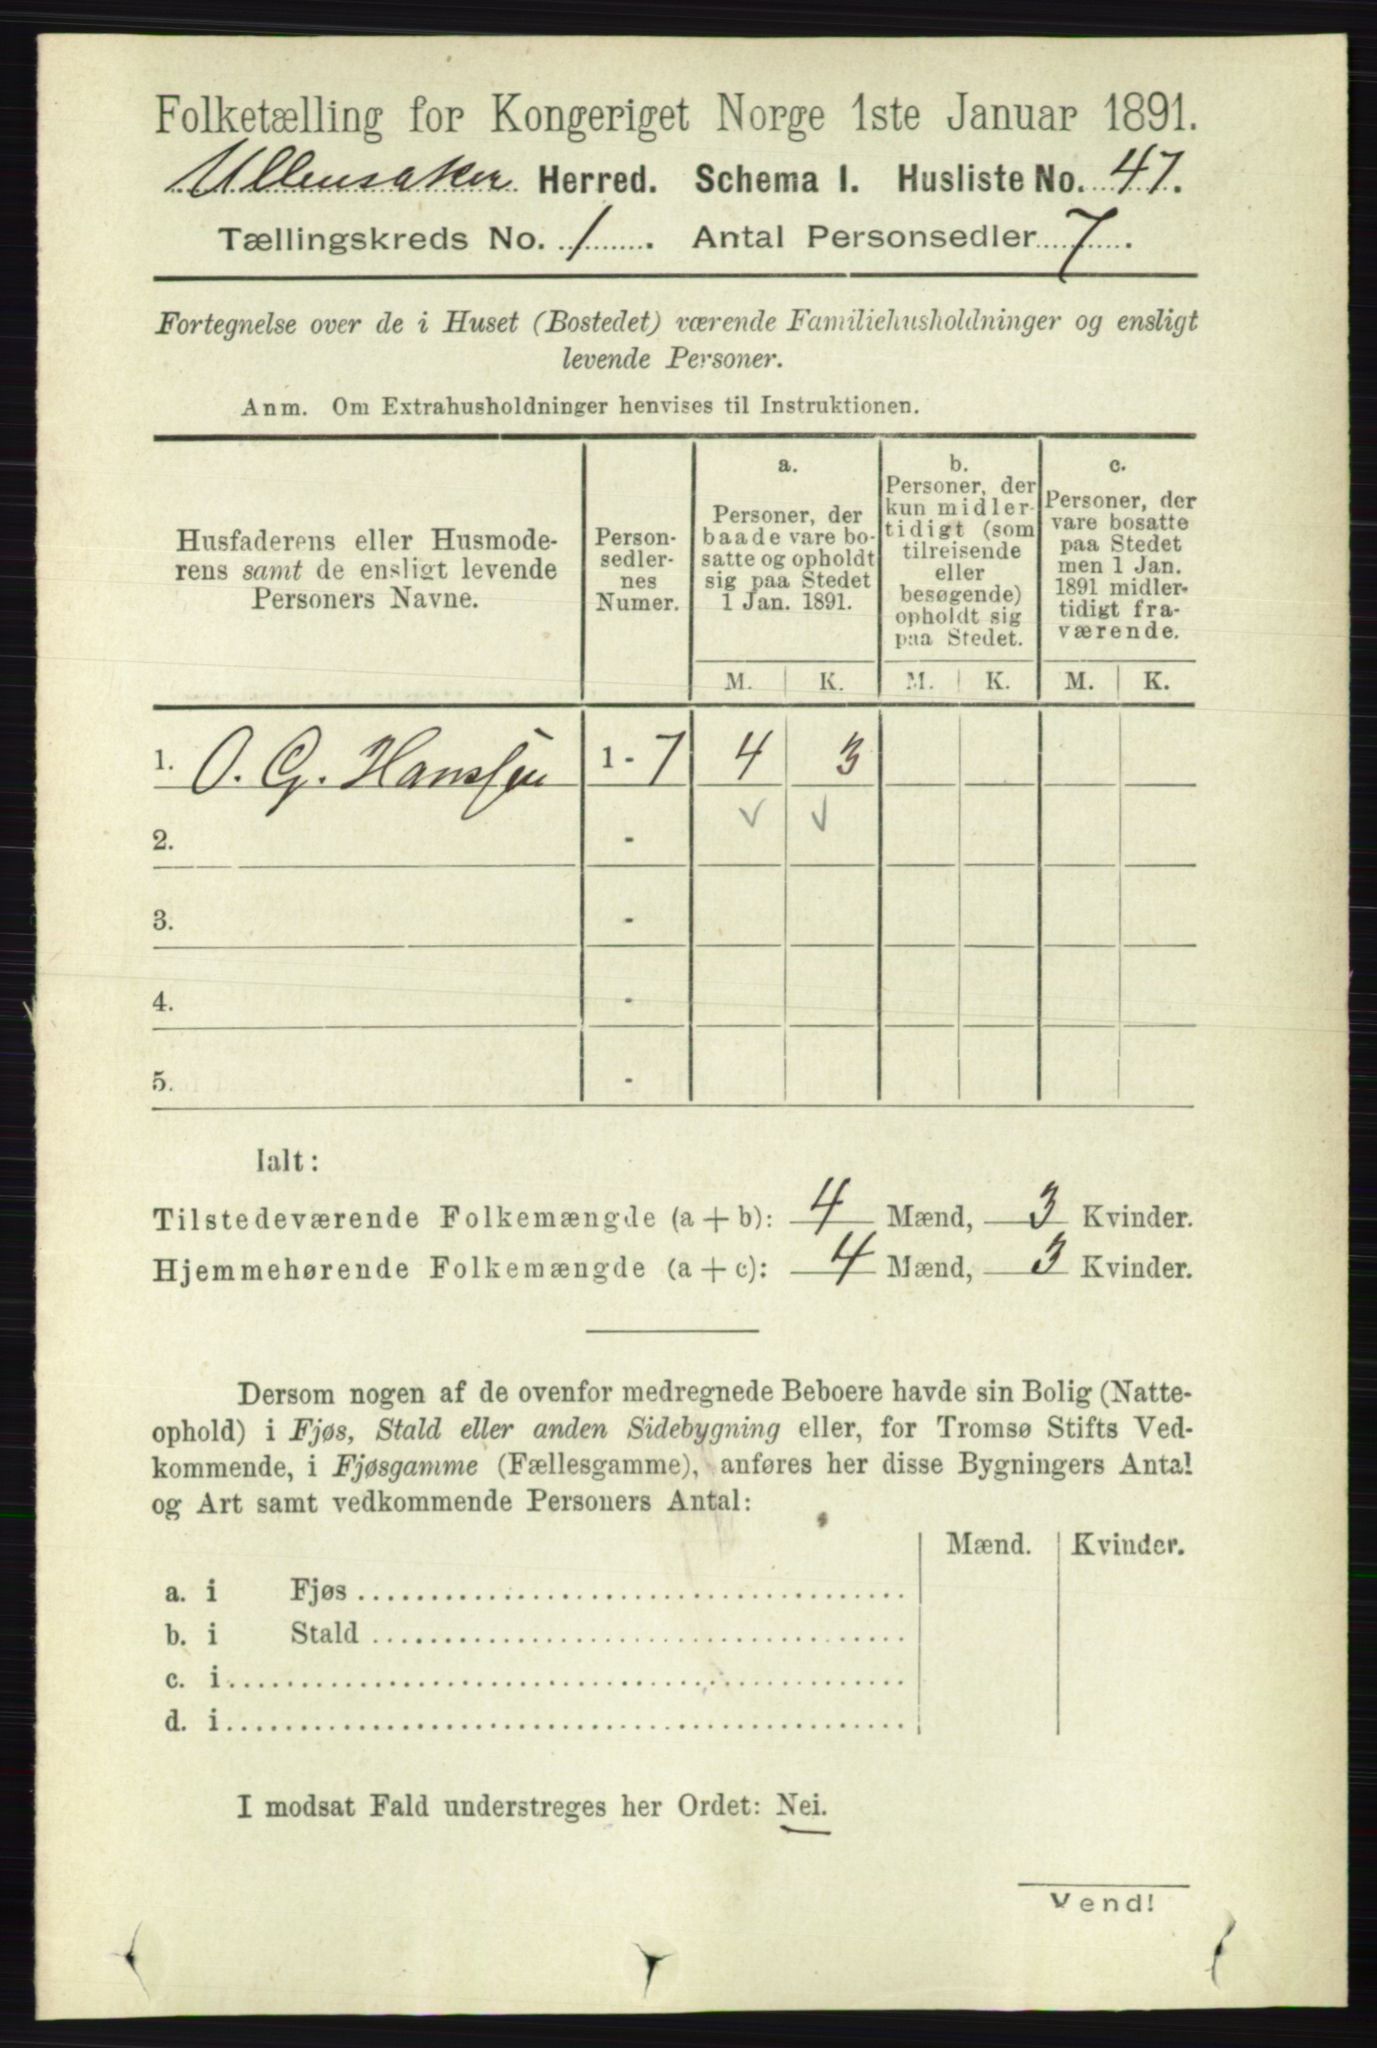 Folketælling for Kongeriget Norge 1ste Januar 1891.
Ullensaker Herred. Schema I. Husliste No. 47.
Tællingskreds No. 1. Antal Personsedler 7.
Fortegnelse over de i Huset (Bostedet) værende Familiehusholdninger og ensligt
levende Personer.
Anm. Om Extrahusholdninger henvises til Instruktionen.
Husfaderens eller Husmode-
rens samt de ensligt levende
Personers Navne.
Person-
sedler-
nes
Numer.
a.
Personer, der
baade vare bo-
satte og opholdt
sig paa Stedet
1 Jan. 1891.
b.
Personer, der
kun midler-
tidigt (som
tilreisende
eller
besøgende)
opholdt sig
paa Stedet.
c.
Personer, der
vare bosatte
paa Stedet
men 1 Jan.
1891 midler-
tidigt fra-
værende.
M. K. M. K. M. K.
1. O. G. Hanssen 1 - 7 4 3
2. - √ √
3. -
4. -
5. -
Ialt:
Tilstedeværende Folkemængde (a + b): 4 Mænd, 3 Kvinder.
Hjemmehørende Folkemængde (a + c): 4 Mænd, 3 Kvinder.
Dersom nogen af de ovenfor medregnede Beboere havde sin Bolig (Natte-
ophold) i Fjøs, Stald eller anden Sidebygning eller, for Tromsø Stifts Ved-
kommende, i Fjøsgamme (Fællesgamme), anføres her disse Bygningers Antal
og Art samt vedkommende Personers Antal:
Mænd. Kvinder.
a. i Fjøs
b. i Stald
c. i
d. i
I modsat Fald understreges her Ordet: Nei.
Vend!